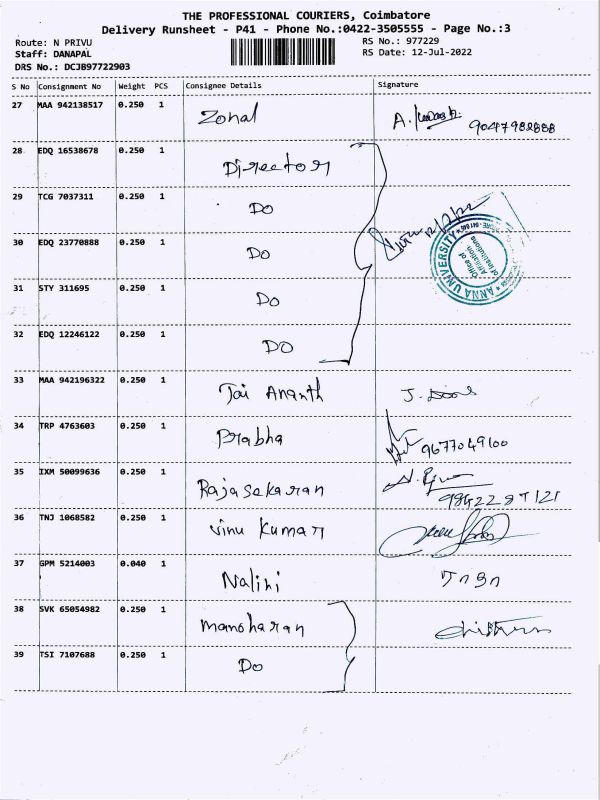 THE PROFESSIONAL COURIERS, Coimbatore
Delivery Runsheet - P41 - Phone No.:0422-3505555 - Page No.:3
Route: N PRIVU RS No.: 977229
Staff: DANAPAL RS Date: 12-Jul-2022
DRS No.: DCJB97722903
S No Consignment No Weight PCS Consignee Details Signature
27 MAA 942138517 0.250 1 Zonal A.
28 EDQ 16538678 0.250 1 Director
29 TCG 7037311 0.250 1 Do
30 EDQ 23770888 0.250 1 Do
31 STY 311695 0.250 1 Do
32 EDQ 12246122 0.250 1 Do
ANNA UNIVERSITY
Office of
Affiliation
of Institutions
33 MAA 942196322 0.250 1 Jai Ananth J.
34 TRP 4763603 0.250 1 Prabha 9677049100
35 IXM 50099636 0.250 1 Rajasekaran
36 TNJ 1068582 0.250 1 Vinu Kumar
37 GPM 5214003 0.040 1 Nalini
38 SVK 65054982 0.250 1 Manoharan
39 TSI 7107688 0.250 1 Do